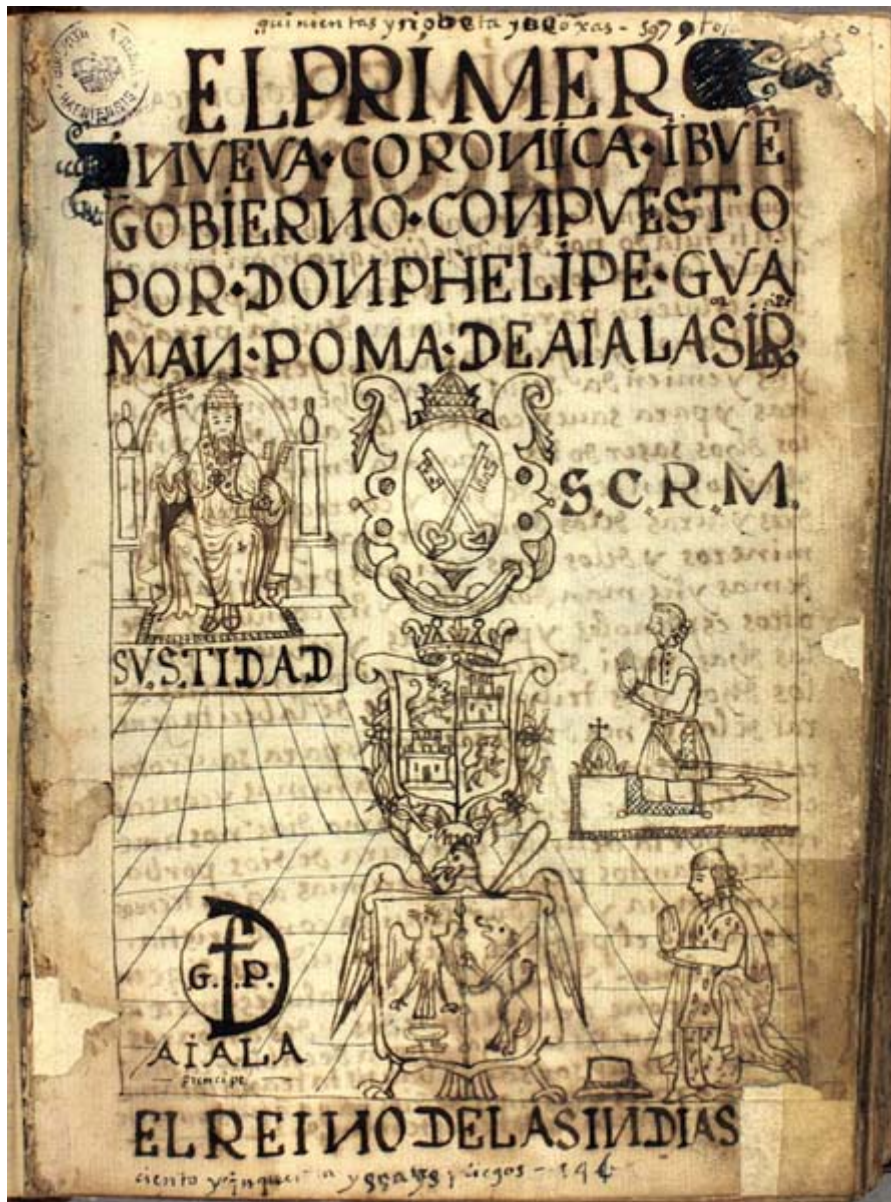 quinientas y nobeta y ojas - 597
EL PRIMER
NVEVA·CORONICA·IBVE
GOBIERNO·CONPVESTO
POR·DON PHELIPE·GVA
MAN·POMA·DE AIALA
S.C.R.M.
SV.S.TIDAD
G. P.
AIALA
principe
EL REINO DE LAS INDIAS
ciento y pliegos - 146